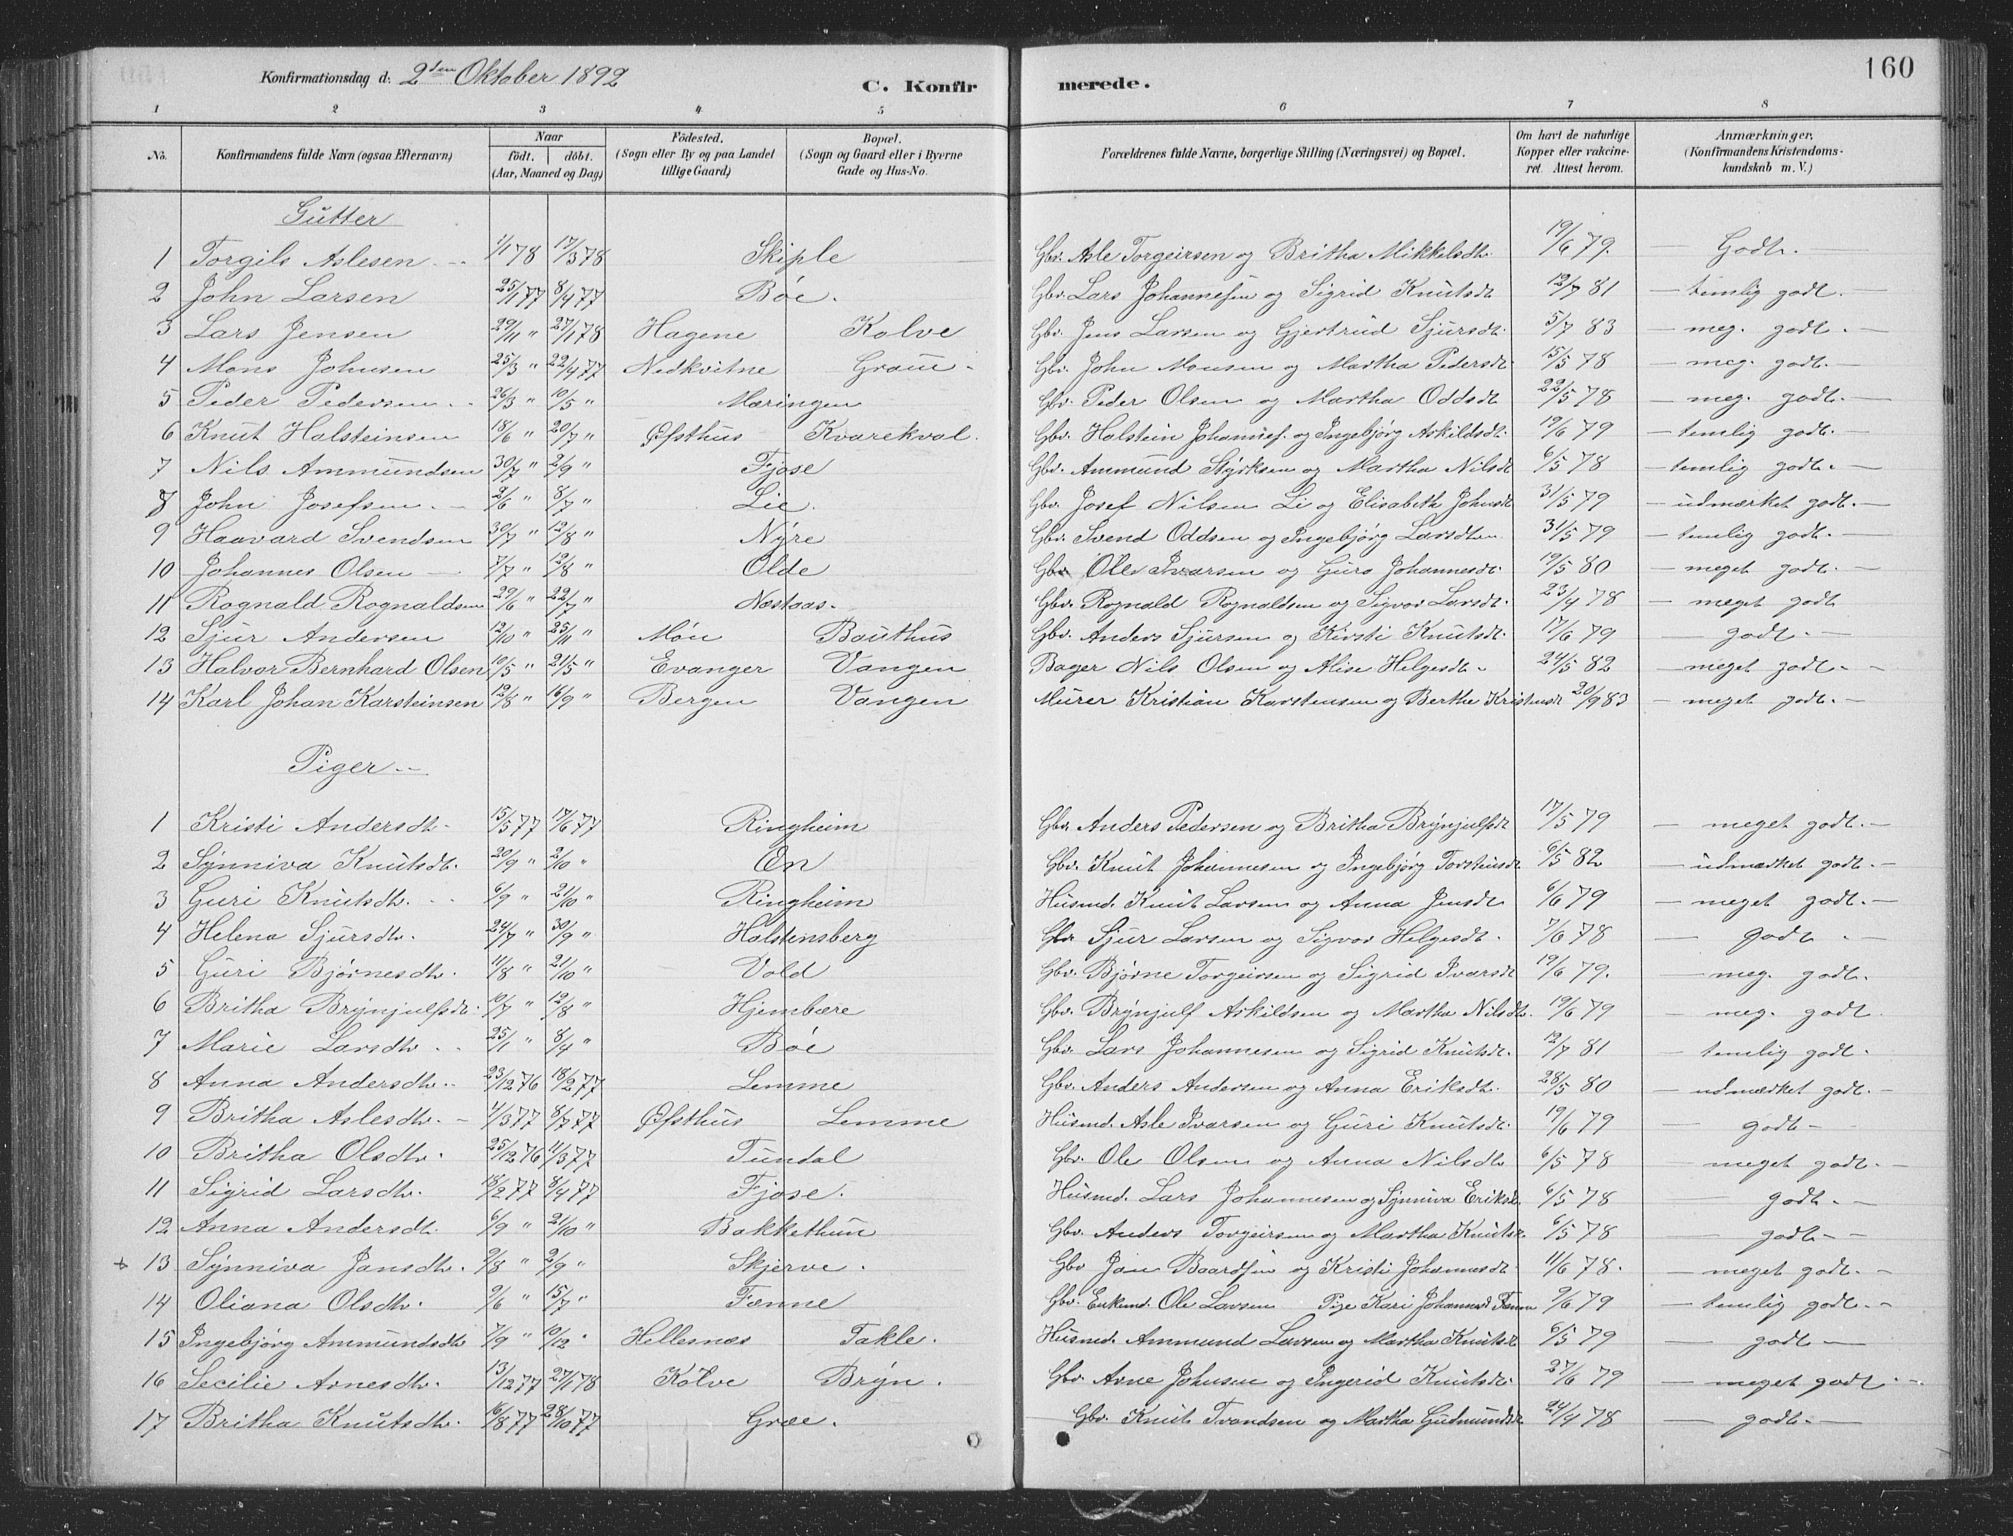 160
Konfirmationsdag d. 2den Oktober 1892 C. Konfirmerede.
1 2 3 4 5 6 7 8
No. Konfirmandens fulde Navn (ogsaa Efternavn) Naar født. døbt. (Aar, Maaned og Dag) Fødested. (Sogn eller By og paa Landet tillige Gaard) Bopæl. (Sogn og Gaard eller i Byerne Gade og Hus-No. Forældrenes fulde Navne, borgerlige Stilling (Næringsvei) og Bopæl. Om havt de naturlige Kopper eller vakcineret. Attest herom. Anmærkninger. (Konfirmandens Kristendomskundskab m. V.)
Gutter
1 Torgils Aslesen 1/1 78 17/3 78 Skiple Gbr. Asle Torgeirsen og Britha Mikkelsdt. 19/6 79. Godt.
2 John Larsen 25/1 77 8/4 77 Böe. Gbr. Lars Johannesen og Sigrid Knutsdt 12/7 81 temlig godt.
3 Lars Jensen 29/11 " 27/1 78 Hagene Kolve Gbr. Jens Larsen og Gjertrud Sjursdt. 5/7 83 meg. godt.
4 Mons Johnsen 25/3 " 22/4 77 Nedkvitne Graue Gbr. John Monsen og Martha Pedersdt 15/5 78 meg. godt.
5 Peder Pedersen 26/3 " 10/5 " Mæringen Gbr. Peder Olsen og Martha Oddsdt 22/5 78 meg. godt.
6 Knut Halsteinsen 18/6 " 20/7 " Øfsthus Kvarekval. Gbr. Halstein Johannesf. og Ingebjörg Askildsdt. 19/6 79 temlig godt.
7 Nils Ammundsen 30/7 " 2/9 " Fjose Gbr. Ammund Styrksen og Martha Nilsdt 6/5 78 temlig godt.
8 John Josefsen 2/6 " 8/7 " Lie. Gbr. Josef Nilsen Li og Elisabeth Johnsdt 31/5 79 udmærket godt.
9 Haavard Svendsen 30/7 " 12/8 " Nyre Gbr. Svend Oddsen og Ingebjörg Larsdtr 31/5 79 temlig godt.
10 Johannes Olsen 7/7 " 12/8 " Olde Gbr. Ole Ivarsen og Guro Johannesdt. 19/5 80 meget godt.
11 Rognald Rognaldsen 29/6 " 22/7 " Næstaas. Gbr. Rognald Rognaldsen og Sigvor Larsdt. 23/4 78 meget godt
12 Sjur Andersen 12/10 " 25/11 " Mön Bauthus Gbr. Anders Sjursen og Kirsti Knutsdt. 17/6 79 godt.
13 Halvor Bernhard Olsen 10/5 " 21/5 " Evanger Vangen Bager Nils Olsen og Alise Helgesdt. 24/5 82 meget godt.
14 Karl Johan Karsteinsen 12/8 " 16/9 " Bergen Vangen Murer Kristian Karstensen og Berthe Kristensdt 20/9 83 meget godt.
Piger
1 Kristi Andersdt. 15/5 77 17/6 77 Ringheim Gbr. Anders Pedersen og Britha Brynjulfsdt 17/5 79 meget godt.
2 Synniva Knutsdt. 20/9 " 2/10 " En Gbr. Knut Johannesen og Ingebjörg Torsteinsdt 6/5 82 udmærket godt.
3 Guri Knutsdtr. 6/9 " 21/10 " Ringheim Husmd. Knut Larsen og Anna Jensdt 6/6 79 meget godt.
4 Helena Sjursdtr. 24/7 " 30/9 " Halstensberg Gbr Sjur Larsen og Sigvor Helgesdt. 7/6 78 godt
5 Guri Bjørnesdtr. 11/8 " 21/10 " Vold Gbr. Bjørne Torgeirsen og Sigrid Ivarsdt 19/6 79. meg. godt.
6 Britha Brynjulfsdt. 10/7 " 12/8 " Hjembære Gbr. Brynjulf Askildsen og Martha Nilsdt. 19/6 79 meg. godt.
7 Marie Larsdtr. 25/1 " 8/4 " Böe Gbr. Lars Johannesen og Sigrid Knutsdt. 12/7 81 temlig godt.
8 Anna Andersdtr. 23/12 76 18/2 77 Lemme Gbr. Anders Andersen og Anna Eriksdt. 28/5 80 udmærket godt.
9 Britha Aslesdtr. 4/3 77 8/7 77 Øfsthus Lemme Husmd. Asle Ivarsen og Guri Knutsdt. 19/6 79 godt
10 Britha Olsdtr. 25/12 76 11/3 77 Tundal Gbr. Ole Olsen og Anna Nilsdtr 6/5 78 meget godt.
11 Sigrid Larsdtr. 18/2 77 8/4 77 Fjose. Husmd. Lars Johannesen og Synniva Eriksdt 6/5 78 godt.
12 Anna Andersdt. 6/9 " 21/10 " Bakkethun Gbr. Anders Torgeirsen og Martha Knutsdt. 6/5 78 godt
13 Synniva Jansdtr. 9/8 " 2/9 " Skjerve. Gbr Jan Baardsen og Kristi Johannesdt 11/6 78. meget godt.
14 Oliana Olsdtr. 9/6 " 15/7 " Fenne Gbr. Enkemd. Ole Larsen Pige Kari Johannesdt Fenne 9/6 79 temlig godt.
15 Ingebjörg Ammundsdtr 7/9 " 10/12 " Hellesnæs Takle. Husmd. Ammund Larsen og Martha Knutsdt 6/5 79 godt
16 Secilie Arnesdtr. 13/12 77 27/1 78 Kolve Bryn. Gbr. Arne Johnsen og Ingerid Knutsdt. 27/6 79 meget godt.
17 Britha Knutsdtr. 16/8 77 28/10 77 Græe. Gbr. Knut Tvandsen og Martha Gudmundsdt 24/4 78 godt.